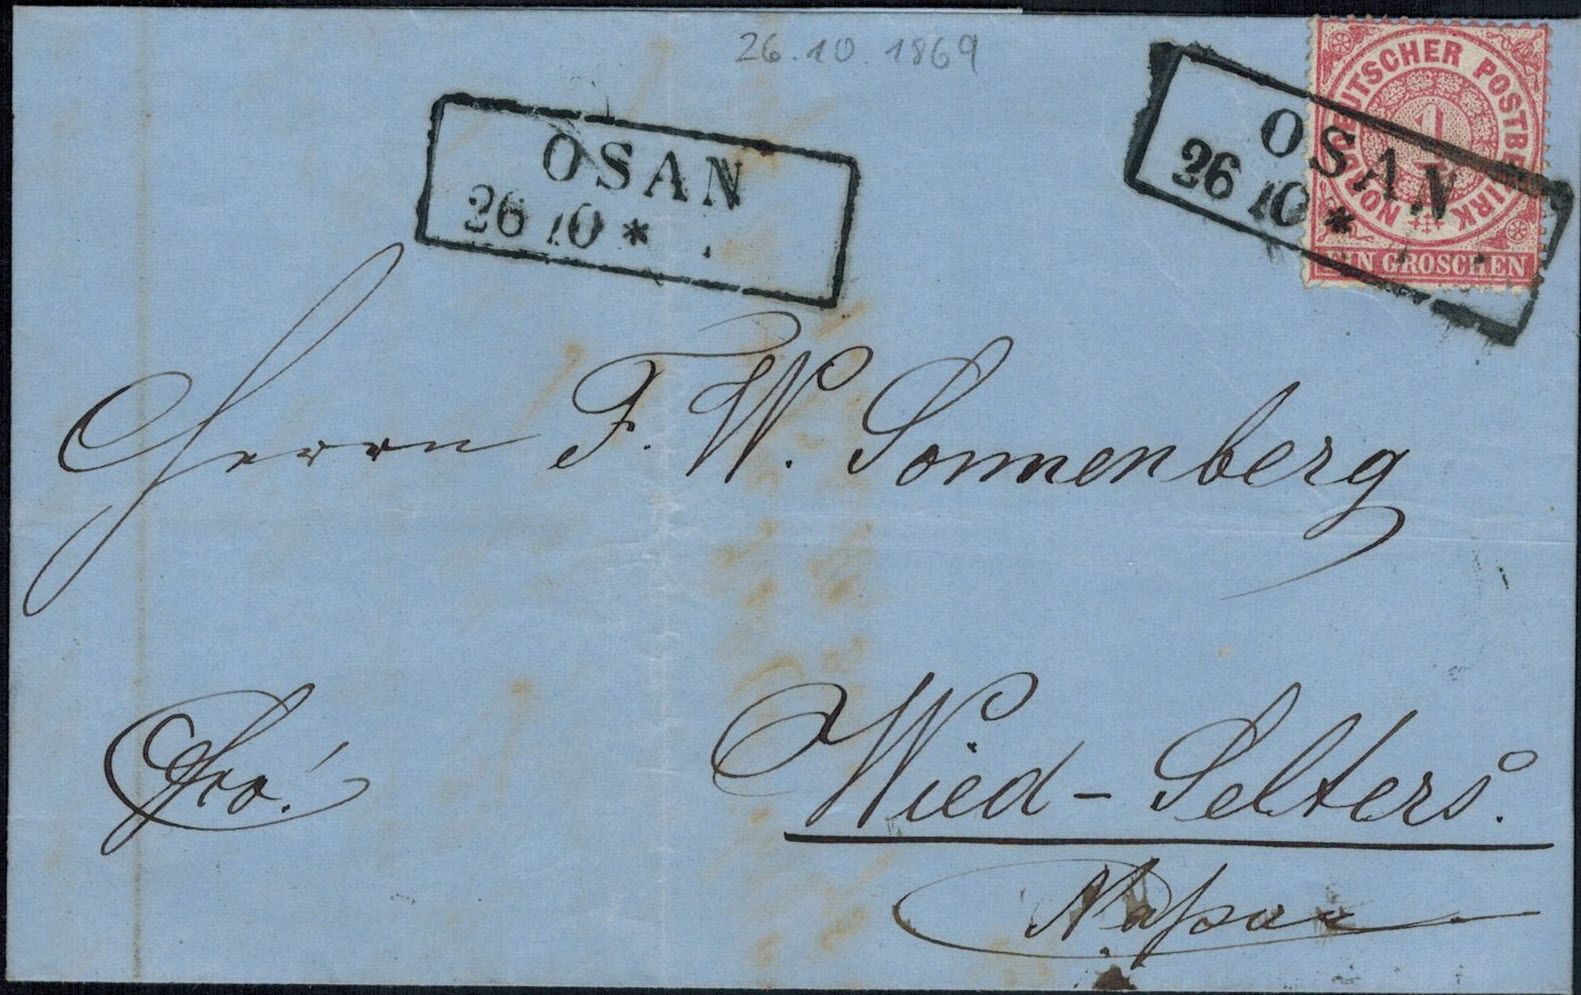 26.10.1869
OSAN
26 10 *
NORDDEUTSCHER POSTBEZIRK
1
EIN GROSCHEN
OSAN
26 10 *
Herrn F. W. Sonnenberg
Fro!
Wied-Selters.
Nassau